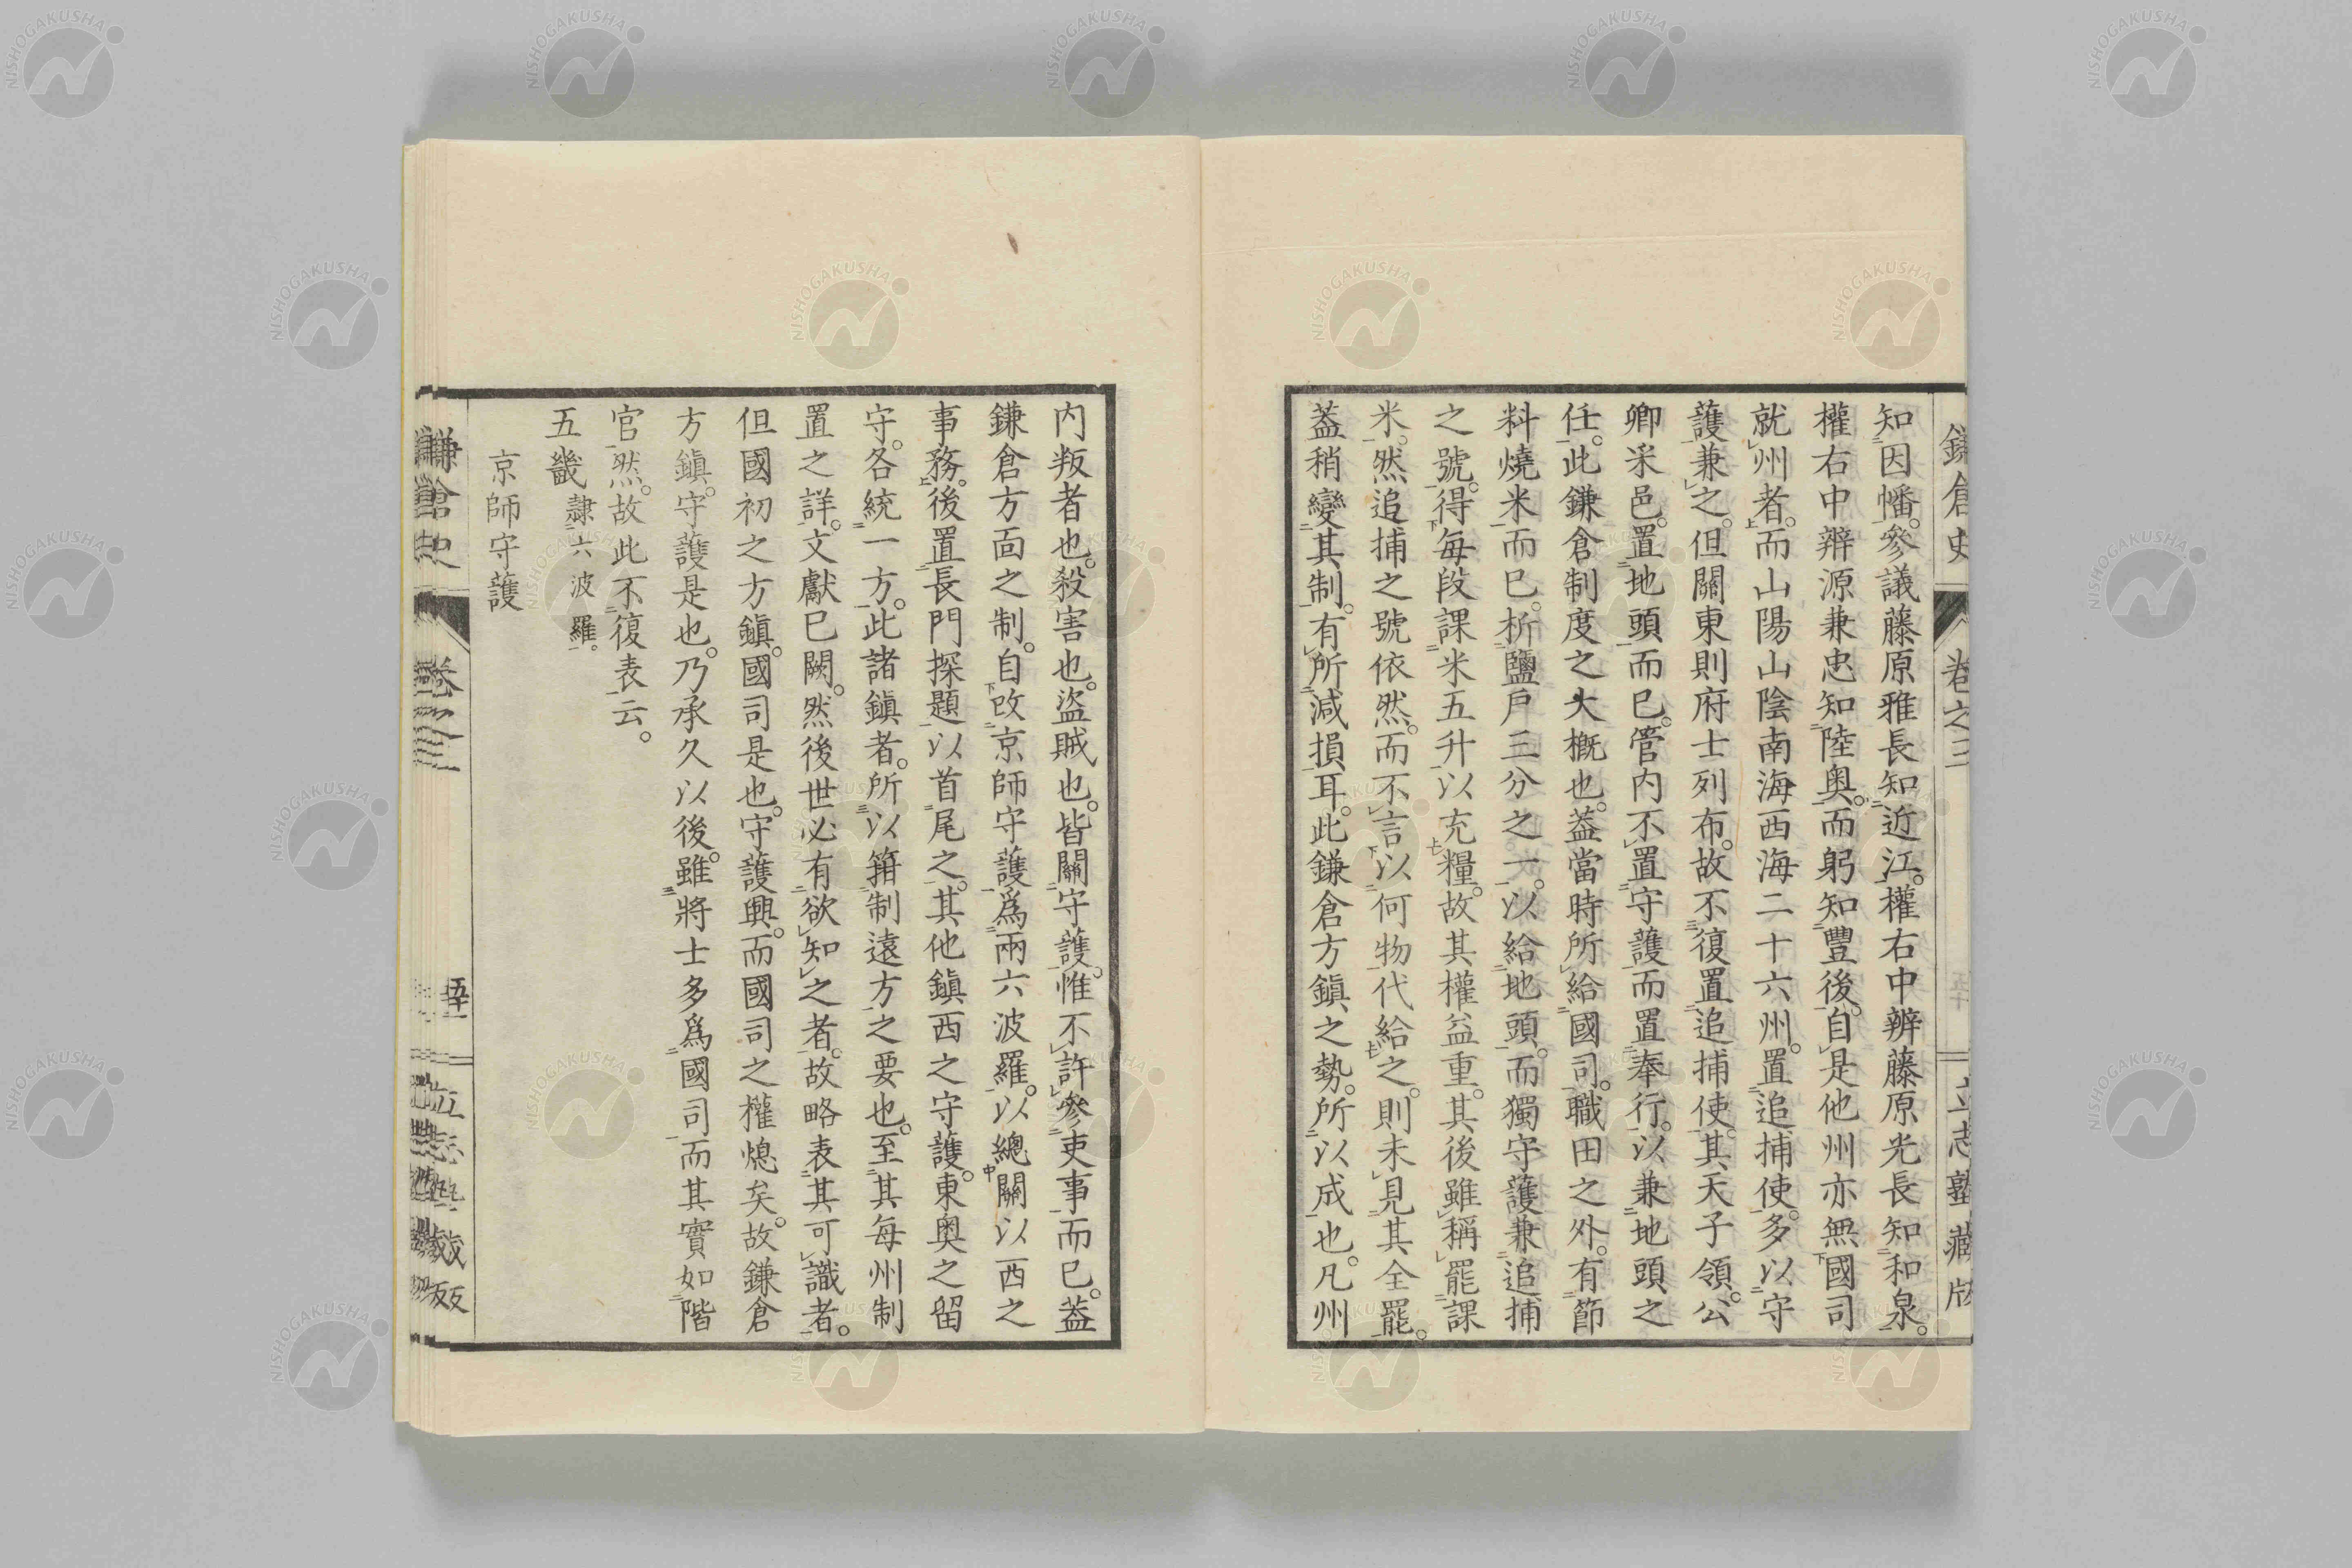 鎌倉史 卷之三 立志塾藏版
知因幡。參議藤原雅長知近江。權右中辨藤原光長知和泉。
權右中辨源兼忠知陸奥。而躬知豐後。自是他州亦無國司
就州者。而山陽山陰南海西海二十六州。置追捕使。多以守
護兼之。但關東則府士列布。故不復置追捕使。其天子領。公
卿采邑。置地頭而已。管内不置守護而置奉行。以兼地頭之
任。此鎌倉制度之大概也。葢當時所給國司。職田之外。有節
料燒米而已。析鹽戸三分之一。以給地頭。而獨守護兼追捕
之號。得毎段課米五升以充糧。故其權益重。其後雖稱罷課
米。然追捕之號依然。而不言以何物代給之。則未見其全罷。
葢稍變其制。有所減損耳。此鎌倉方鎭之勢。所以成也。凡州
内叛者也。殺害也。盜賊也。皆關守護。惟不許參吏事而已。葢
鎌倉方面之制。自改京師守護爲兩六波羅。以總關以西之
事務。後置長門探題以首尾之。其他鎭西之守護。東奥之留
守。各統一方。此諸鎭者。所以箝制遠方之要也。至其毎州制
置之詳。文獻已闕。然後世必有欲知之者。故略表其可識者。
但國初之方鎭。國司是也。守護興。而國司之權熄矣。故鎌倉
方鎭。守護是也。乃承久以後。雖將士多爲國司。而其實如階
官然。故此不復表云。
五畿 隷六波羅。
京師守護
鎌倉史 卷之三